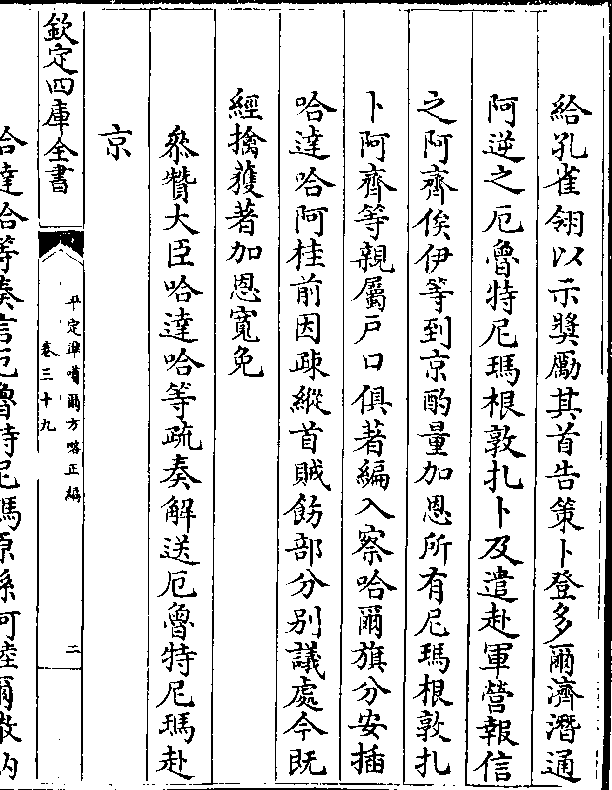 給孔雀翎以示奬勵其首告策卜登多爾濟潛通
阿逆之厄魯特尼瑪根敦扎卜及遣赴軍營報信
之阿齊俟伊等到京酌量加恩所有尼瑪根敦扎
卜阿齊等親屬戸口俱著編入察哈爾旗分安插
哈達哈阿桂前因疎縱首賊飭部分别議處今既
經擒獲著加恩寛免
叅贊大臣哈達哈等疏奏解送厄魯特尼瑪赴
京
欽定四庫全書
平定準噶爾方畧正編
卷三十九
二
哈達哈等奏言厄魯特尼瑪原係阿睦爾撒納